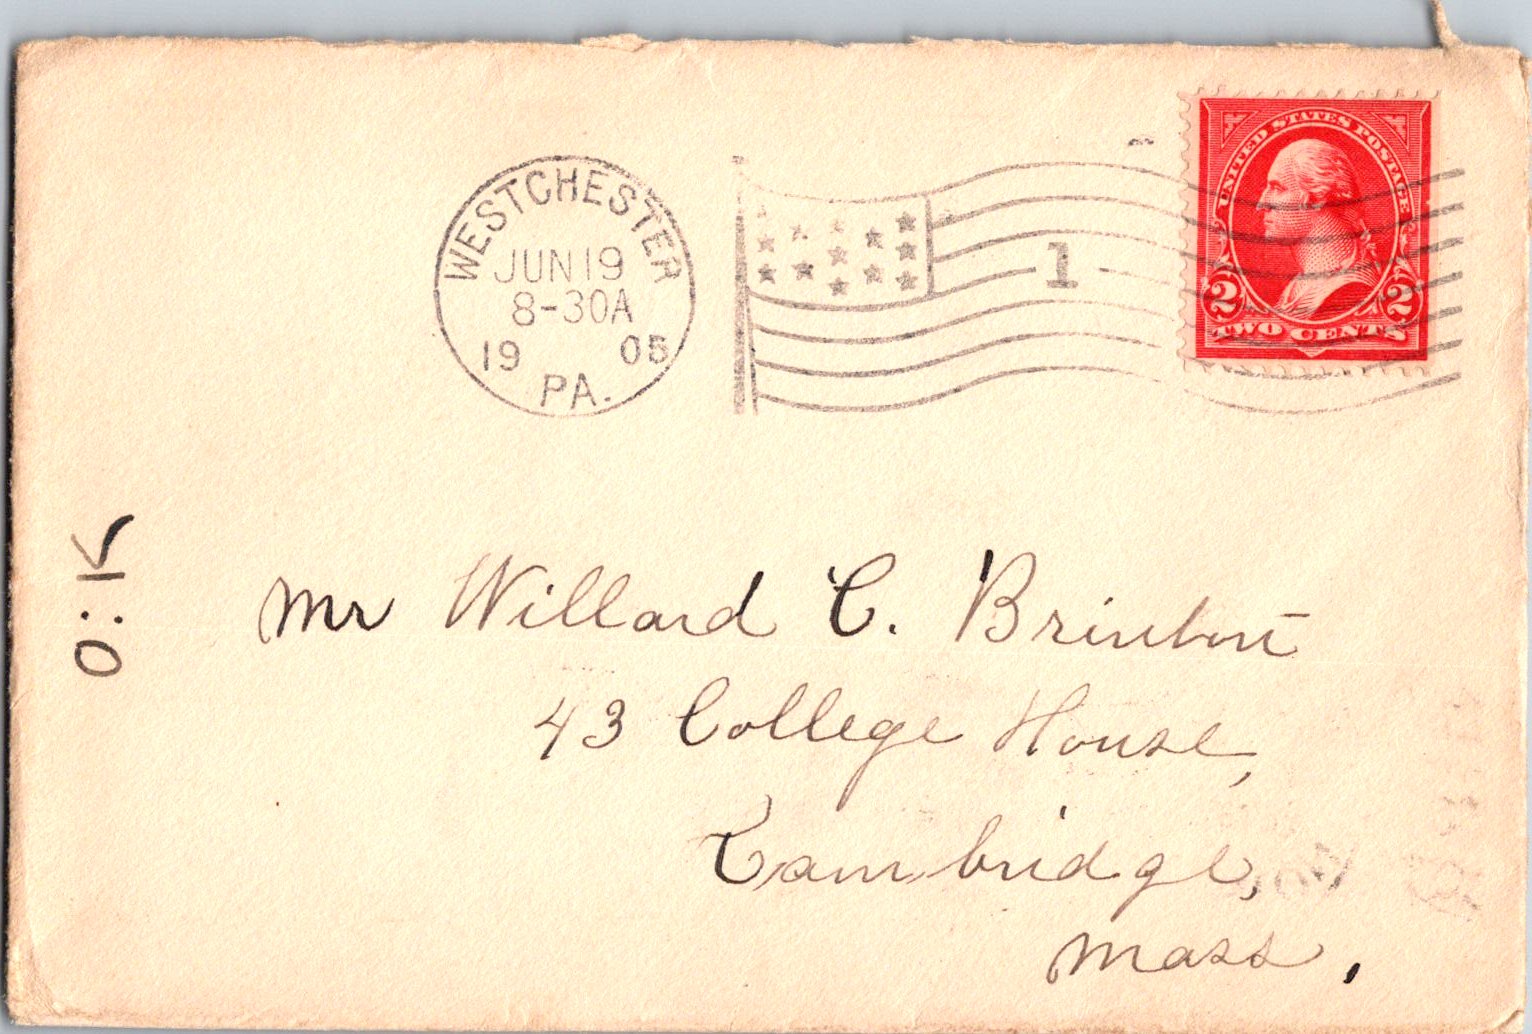 WESTCHESTER
JUN 19
8-30A
19 05
PA.
1
UNITED STATES POSTAGE
2 2
TWO CENTS
O.K
Mr Willard C. Brinton
43 College House,
Cambridge,
Mass.